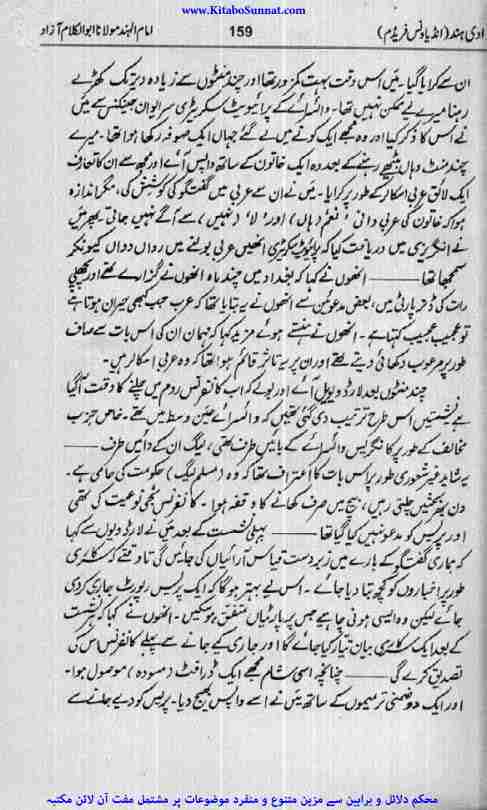 www.KitaboSunnat.com
امام الہند مولانا ابوالکلام آزاد 159 ادی ہند (انڈیا ونس فریڈم)
ان سے کرایا گیا۔ میں اس وقت بہت کمزور تھا اور چند منٹوں سے زیادہ دیر تک کھڑے
رہنا میرے لیے ممکن نہیں تھا۔ وائسرائے کے پرائیویٹ سکریٹری سر ایوان جینکنس سے میں
نے اس کا ذکر کیا اور وہ مجھے ایک کونے میں لے گئے جہاں ایک صوفہ رکھا ہوا تھا۔ میرے
چند منٹ وہاں بیٹھے رہنے کے بعد وہ ایک خاتون کے ساتھ واپس آئے اور مجھ سے ان کا تعارف
ایک لائق عربی اسکالر کے طور پر کرایا۔ میں نے ان سے عربی میں گفتگو کی کوشش کی، مگر اندازہ
ہوا کہ خاتون کی عربی دانی ’نعم‘ (ہاں) اور ’لا‘ (نہیں) سے آگے نہیں جاتی۔ پھر میں
نے انگریزی میں دریافت کیا کہ پرائیویٹ سکریٹری انھیں عربی بولنے میں رواں دواں کیونکر
سمجھتا تھا ——— انھوں نے کہا کہ بغداد میں چند ماہ انھوں نے گزارے تھے اور پچھلی
رات کی ڈنر پارٹی میں، بعض مدعوئین سے انھوں نے یہ بتایا تھا کہ عرب جب بھی حیران ہوتا ہے
تو عجیب عجیب کہتا ہے۔ انھوں نے ہنستے ہوئے مزید کہا کہ مہمان ان کی اس بات سے صاف
طور پر مرعوب دکھائی دیتے تھے اور ان پر یہ تاثر قائم ہوا تھا کہ وہ عربی اسکالر ہیں۔
چند منٹوں بعد لارڈ ویول آئے اور بولے کہ اب کانفرنس روم میں چلنے کا وقت آگیا
ہے نشستیں اس طرح ترتیب دی گئی تھیں کہ وائسرائے عین وسط میں تھے۔ خاص حزب
مخالف کے طور پر کانگریس وائسرائے کے بائیں طرف تھی، لیگ ان کے دائیں طرف ———
یہ شاید غیر شعوری طور پر اس بات کا اعتراف تھا کہ وہ (مسلم لیگ) حکومت کی حامی ہے۔
دن بھر بحثیں چلتی رہیں، بیچ میں صرف کھانے کا وقفہ ہوا۔ کانفرنس نجی نوعیت کی تھی
اور پریس کو مدعو نہیں کیا گیا تھا ——— پہلی نشست کے بعد میں نے لارڈ ویول سے کہا
کہ ہماری گفتگو کے بارے میں زبردست قیاس آرائیاں کی جائیں گی تاوقتے کہ سرکاری
طور پر اخباروں کو کچھ بتا دیا جائے۔ اس لیے بہتر ہوگا کہ ایک پریس رپورٹ جاری کردی
جائے لیکن وہ ایسی ہونی چاہیے جس پر پارٹیاں متفق ہوسکیں۔ انھوں نے کہا کہ نشست
کے بعد ایک سرکاری بیان تیار کیا جائے گا اور جاری کیے جانے سے پہلے کانفرنس اس کی
تصدیق کرے گی ——— چنانچہ اسی شام مجھے ایک ڈرافٹ (مسودہ) موصول ہوا۔
اور ایک دو ضمنی ترمیموں کے ساتھ میں نے اسے واپس بھیج دیا۔ پریس کو دیے جانے سے
محکم دلائل و براہین سے مزین متنوع و منفرد موضوعات پر مشتمل مفت آن لائن مکتبہ